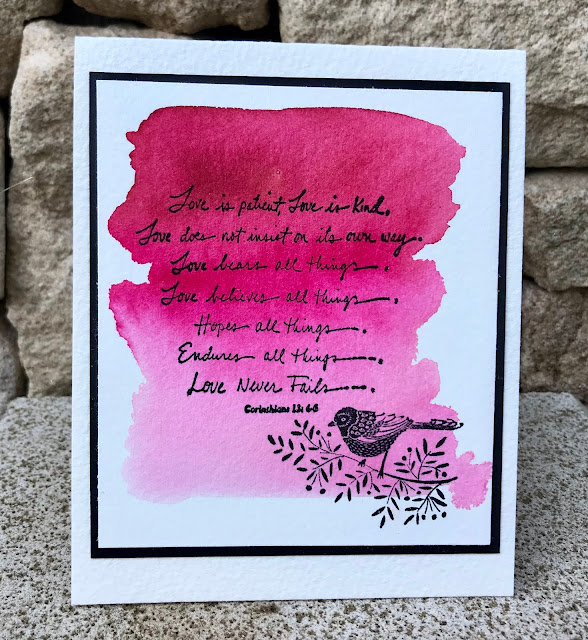 Love is patient, Love is Kind.
Love does not insist on its own way.
Love bears all things.
Love believes all things.
Hopes all things.
Endures all things.
Love Never Fails.
Corinthians 13: 4-8